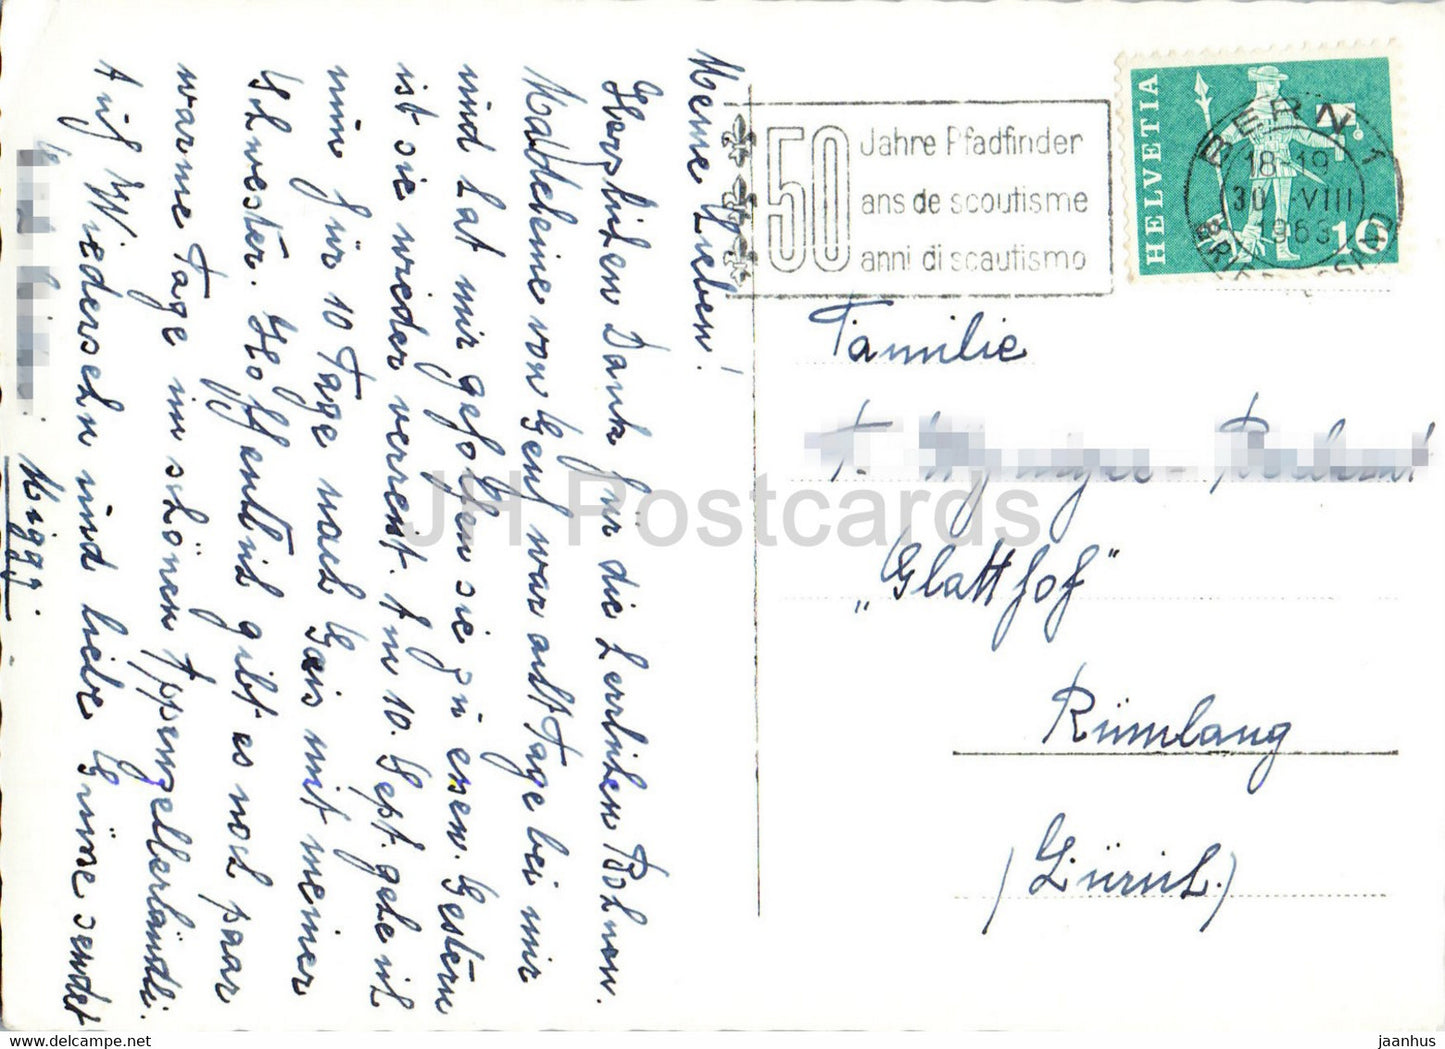 Meine Lieben!
Herzlichen Dank für die herrlichen Bohnen.
Madeleine von Genf war acht Tage bei mir
und hat mir geholfen sie zu essen. Gestern
ist sie wieder verreist. Am 10. Sept. gehe ich
nun für 10 Tage nach Gais mit meiner
Schwester. Hoffentlich gibt es noch paar
warme Tage im schönen Appenzellerländli.
Auf Wiedersehn und liebe Grüsse sendet
Miggi.
50
Jahre Pfadfinder
ans de scoutisme
anni di scautismo
BERN 1
18-19
30. VIII
1963
HELVETIA
10
Familie
„Glatthof"
Rümlang
(Zürich.)
JH Postcards
www.delcampe.net
jaanhus